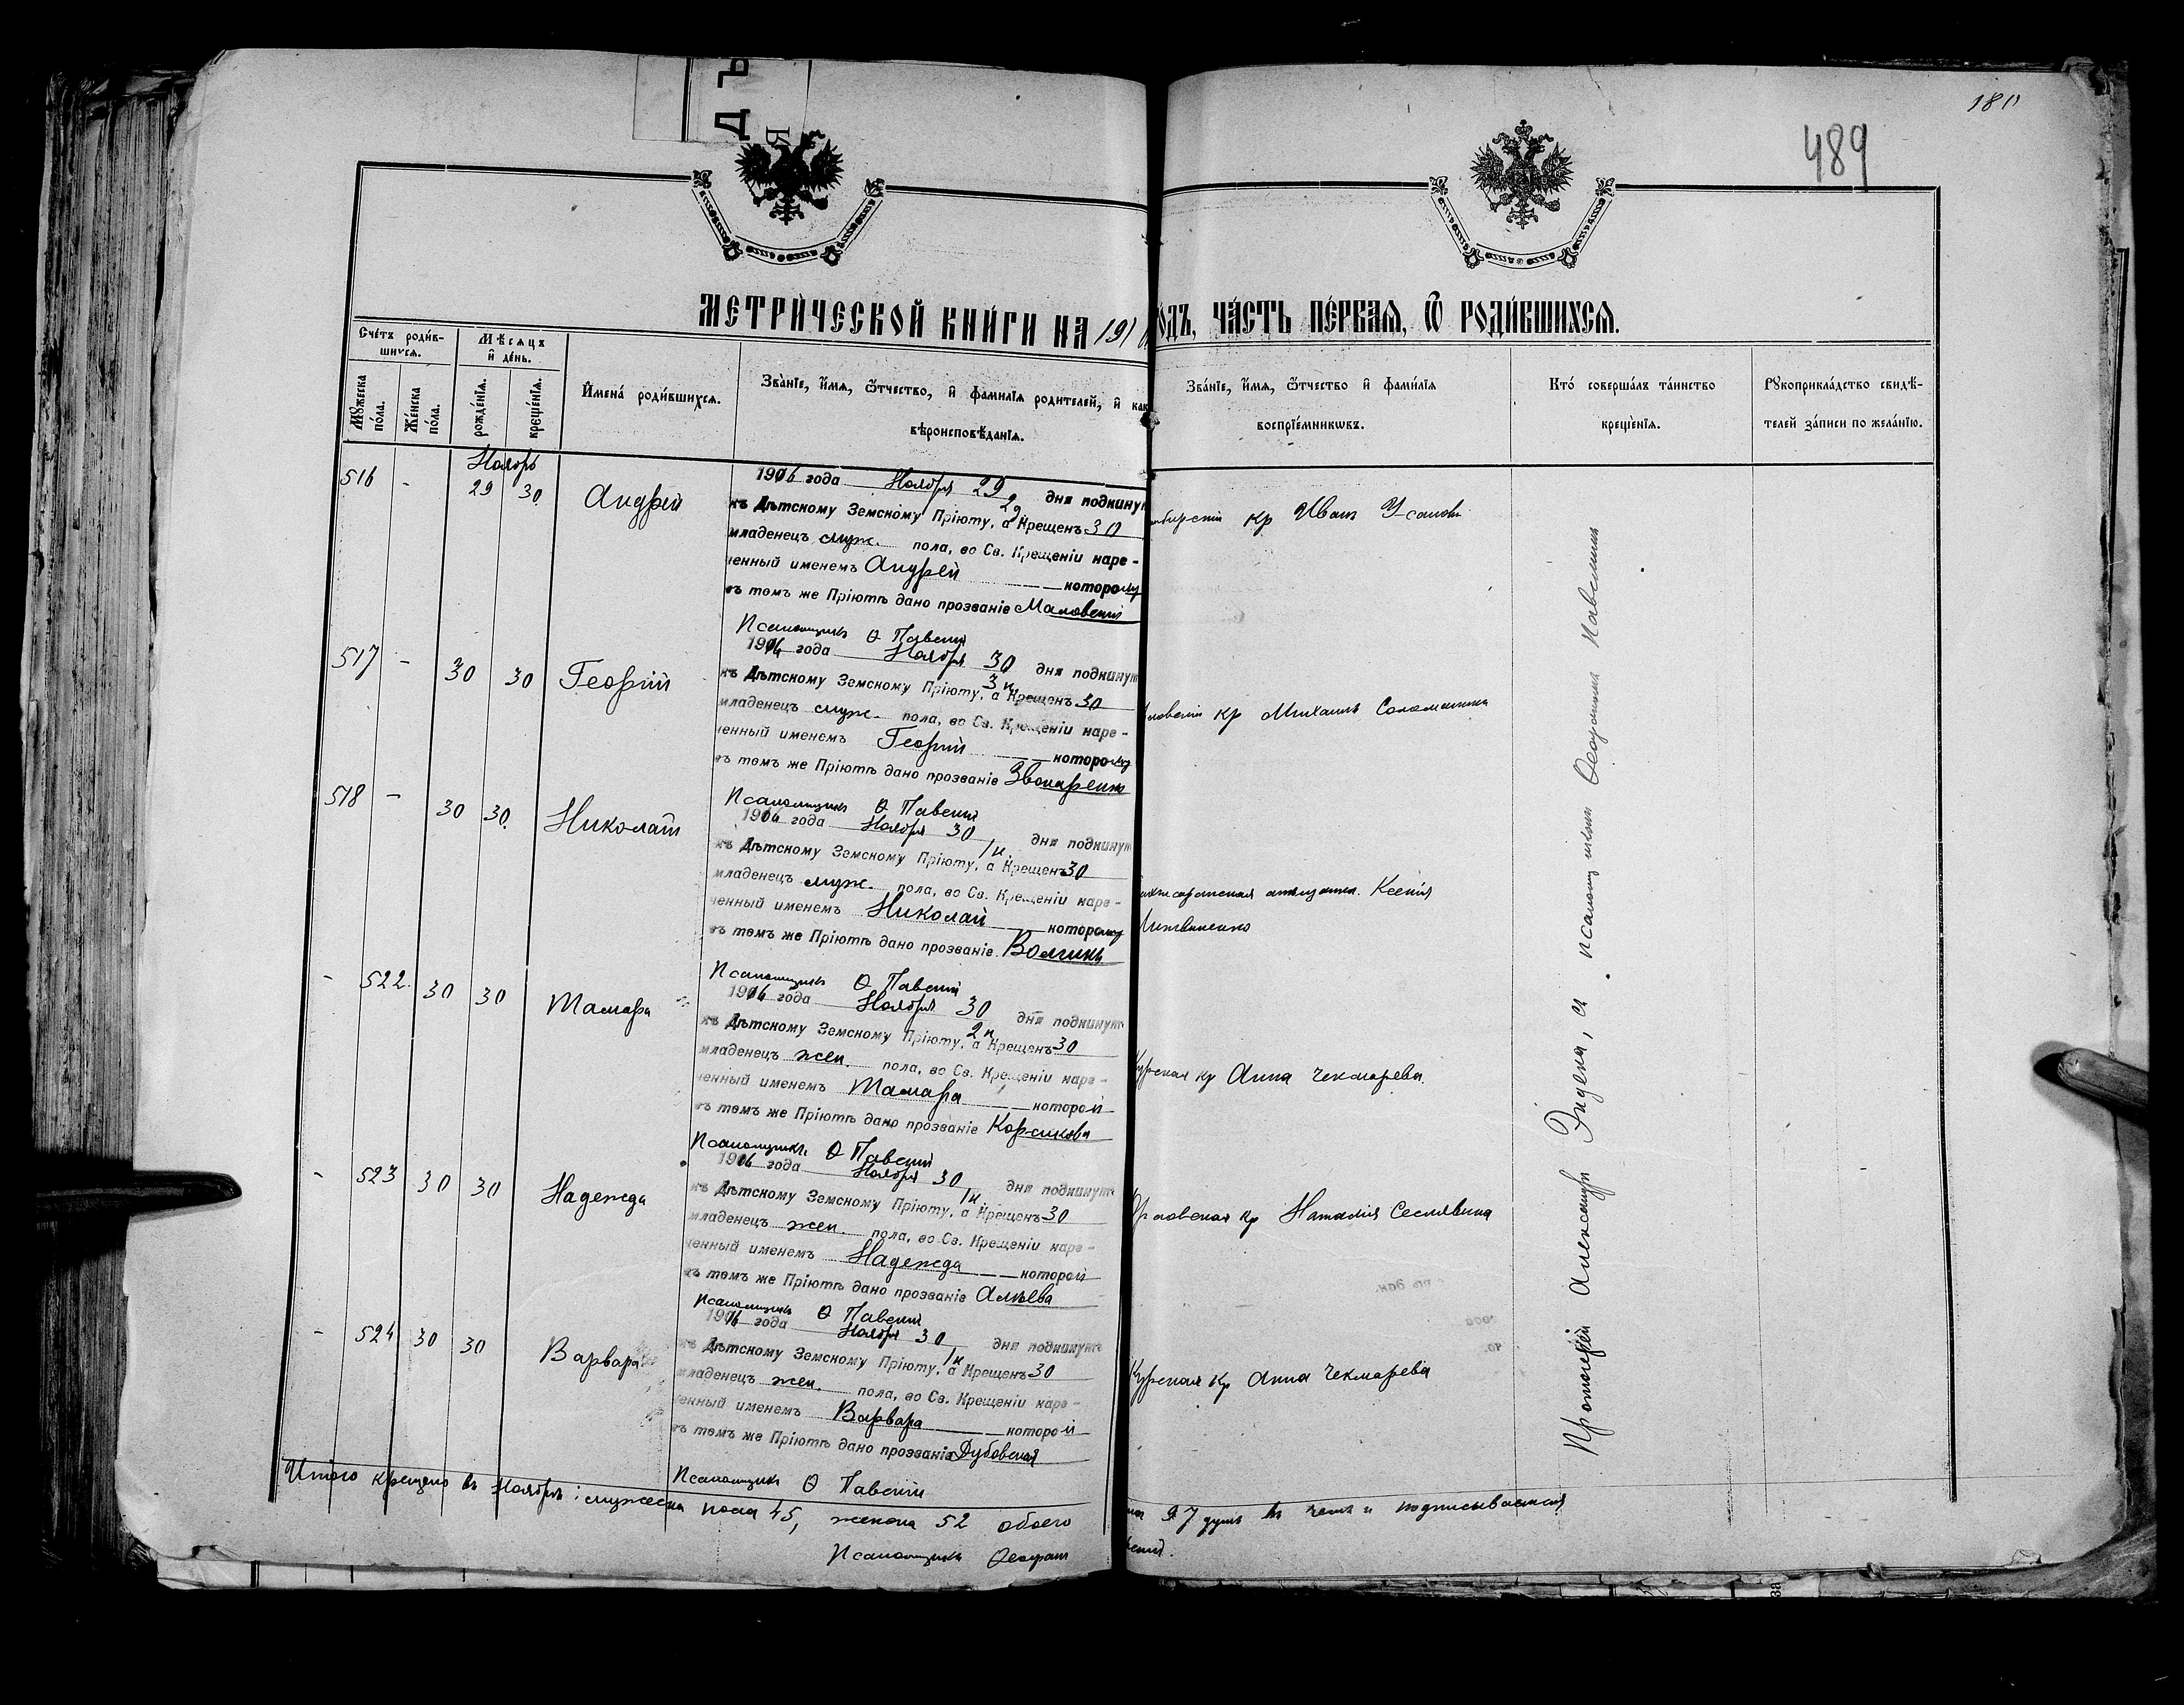 180
489
ДЪ
МЕТРИ́ЧЕСКОЙ КНИ́ГИ НА 191
ОДЪ, ЧА́СТЬ ПЕ́РВАЯ, Ѡ РОДИ́ВШИХСЯ.
Сче́тъ роди́в-
шихся.
Мѣ́сяцъ
и҆ де́нь.
Мꙋ́жеска
по́ла.
Же́нска
по́ла.
рожде́нїя.
креще́нїя.
И҆мена́ роди́вшихся.
Зва́нїе, и҆́мя, ѻ҆́тчество, и҆ фами́лїя роди́телей, и҆ как
вѣроисповѣ́данїя.
Зва́нїе, и҆́мя, ѻ҆́тчество и҆ фами́лїя
воспрїе́мникѡвъ.
Кто́ соверша́лъ та́инство
креще́нїя.
Рꙋкоприкла́дство свидѣ́-
телей за́писи по жела́нїю.
Ноябрь
516 - 29 30 Андрей
1916 года Ноября 29 дня подкину
къ Дѣтскому Земскому Пріюту, а Крещенъ 30
младенецъ муж. пола, во Св. Крещеніи наре-
ченный именемъ Андрей которому
въ томъ же Пріютѣ дано прозваніе Маловскій
Псаломщикъ Ѳ Павскій
кр Иванъ Усановъ
517 - 30 30 Георгій
1916 года Ноября 30 дня подкинут
къ Дѣтскому Земскому Пріюту, а Крещенъ 30
младенецъ муж. пола, во Св. Крещеніи наре-
ченный именемъ Георгій которому
въ томъ же Пріютѣ дано прозваніе Звонаренко
Псаломщикъ Ѳ Павскій
кр Михаилъ Соломатинъ
518 - 30 30. Николай
1916 года Ноября 30 дня подкинут
къ Дѣтскому Земскому Пріюту, а Крещенъ 30
младенецъ муж. пола, во Св. Крещеніи наре-
ченный именемъ Николай которому
въ томъ же Пріютѣ дано прозваніе Волгинъ
Псаломщикъ Ѳ Павскій
мѣщанка Ксенія
Литвиненко
- 522. 30 30 Тамара
1916 года Ноября 30 дня подкинут
къ Дѣтскому Земскому Пріюту, а Крещенъ 30
младенецъ жен. пола, во Св. Крещеніи наре-
ченный именемъ Тамара которой
въ томъ же Пріютѣ дано прозваніе Корсикова
Псаломщикъ Ѳ Павскій
Курская кр Анна Чекмарева.
- 523 30 30 Надежда
1916 года Ноября 30 дня подкинут
къ Дѣтскому Земскому Пріюту, а Крещенъ 30
младенецъ жен. пола, во Св. Крещеніи наре-
ченный именемъ Надежда которой
въ томъ же Пріютѣ дано прозваніе Алѣева
Псаломщикъ Ѳ Павскій
Орловская кр Наталія Сеславина
- 524 30 30 Варвара
1916 года Ноября 30 дня подкинут
къ Дѣтскому Земскому Пріюту, а Крещенъ 30
младенецъ жен. пола, во Св. Крещеніи наре-
ченный именемъ Варвара которой
въ томъ же Пріютѣ дано прозваніе Дубовская
Псаломщикъ Ѳ Павскій
Курская кр Анна Чекмарева
Протоіерей Александръ Эйдеха, и псаломщикъ Ѳеофанъ Павскій
Итого крещено въ Ноябрѣ: мужеска пола 45, женска 52 обоего
97 душъ въ чемъ и подписываемся
Псаломщикъ Ѳеофан